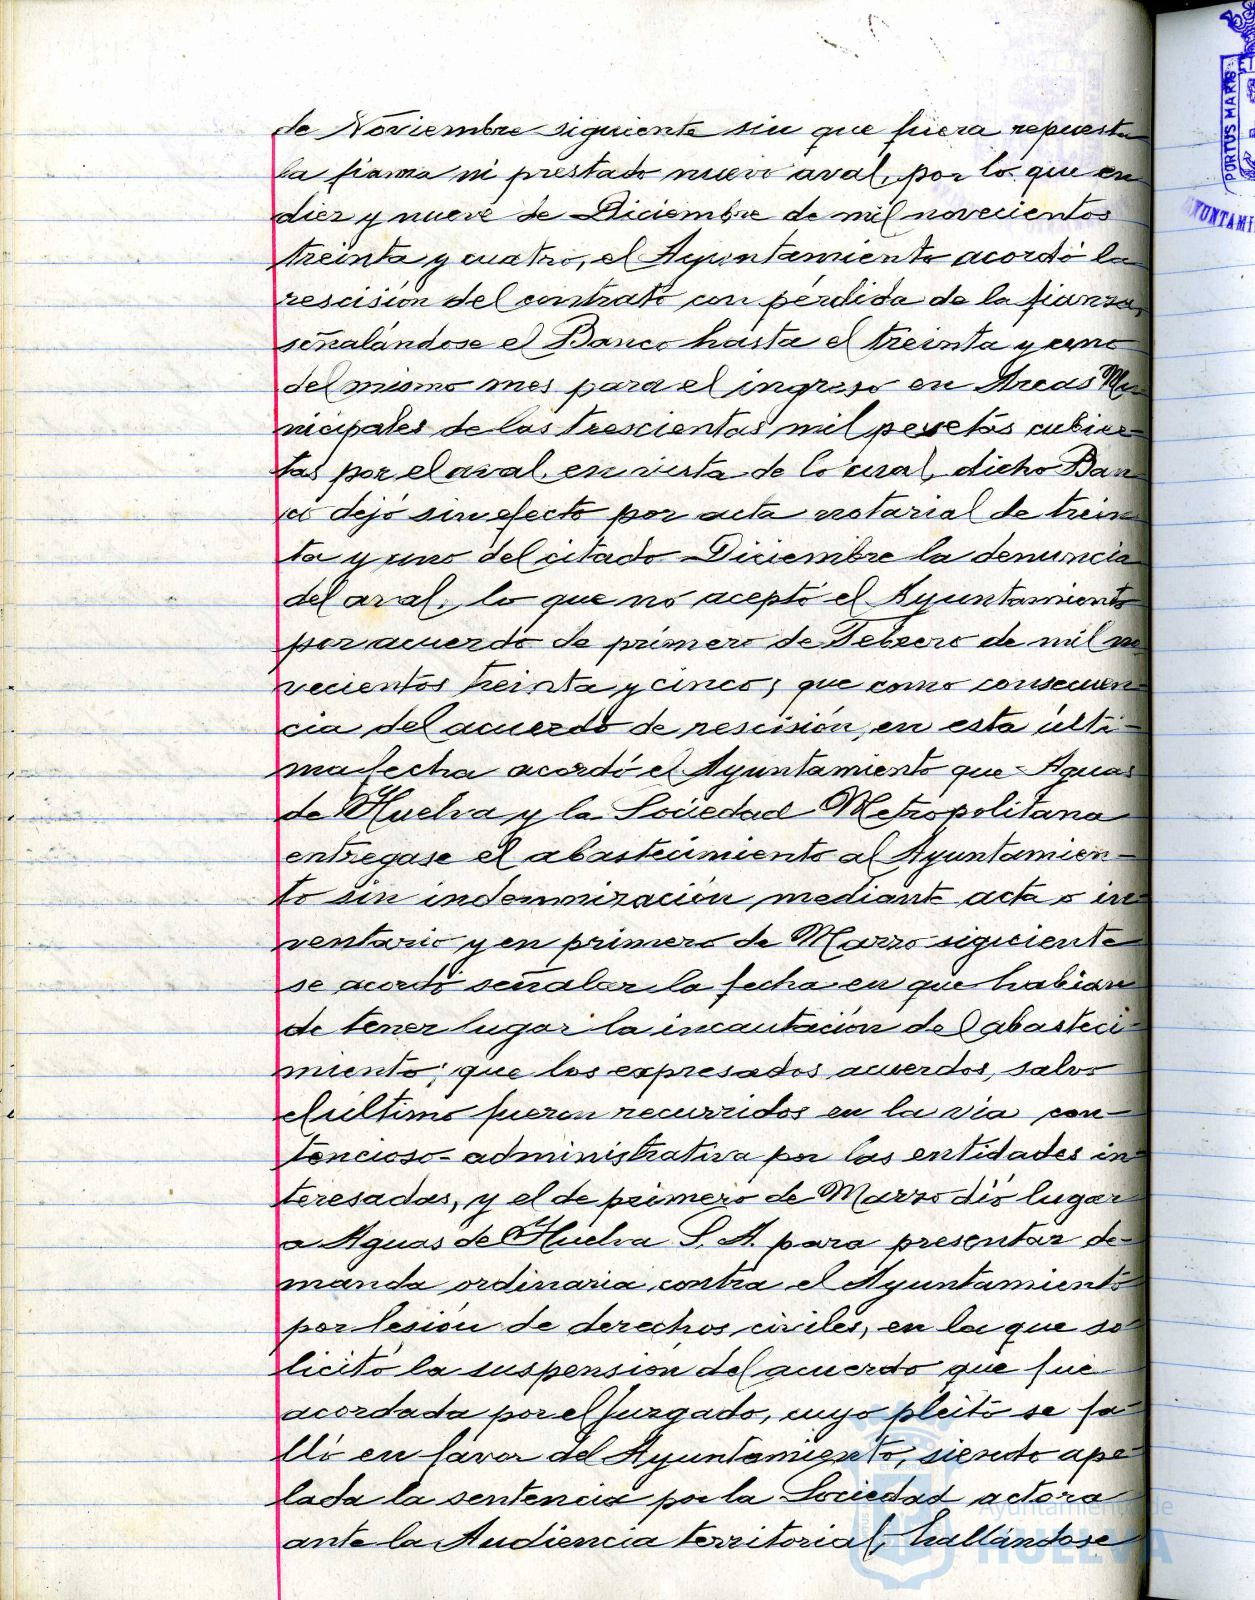 de Noviembre siguiente sin que fuera repuesta
la fianza ni prestado nuevo aval, por lo que en
diez y nueve de Diciembre de mil novecientos
treinta y cuatro, el Ayuntamiento acordó la
rescisión del contrato con pérdida de la fianza,
señalándose el Banco hasta el treinta y uno
del mismo mes para el ingreso en Arcas Mu-
nicipales de las trescientas mil pesetas cubier-
tas por el aval, en vista de lo cual, dicho Ban-
co dejó sin efecto por acta notarial de trein-
ta y uno del citado Diciembre la denuncia
del aval, lo que no aceptó el Ayuntamiento
por acuerdo de primero de Febrero de mil no-
vecientos treinta y cinco; que como consecuen-
cia del acuerdo de rescisión, en esta últi-
ma fecha acordó el Ayuntamiento que Aguas
de Huelva y la Sociedad Metropolitana
entregase el abastecimiento al Ayuntamien-
to sin indemnización mediante acta o in-
ventario y en primero de Marzo siguiente
se acordó señalar la fecha en que habian
de tener lugar la incautación del abasteci-
miento; que los expresados acuerdos, salvo
el último fueron recurridos en la via con-
tencioso-administrativa por las entidades in-
teresadas, y el de primero de Marzo dió lugar
a Aguas de Huelva S. A. para presentar de-
manda ordinaria contra el Ayuntamiento
por lesión de derechos civiles, en la que so-
licitó la suspensión del acuerdo que fué
acordada por el Juzgado, cuyo pleito se fa-
lló en favor del Ayuntamiento, siendo ape-
lada la sentencia por la Sociedad actora
ante la Audiencia territorial, hallándose
PORTUS MARIS
AYUNTAMI
Ayuntamiento de
HUELVA